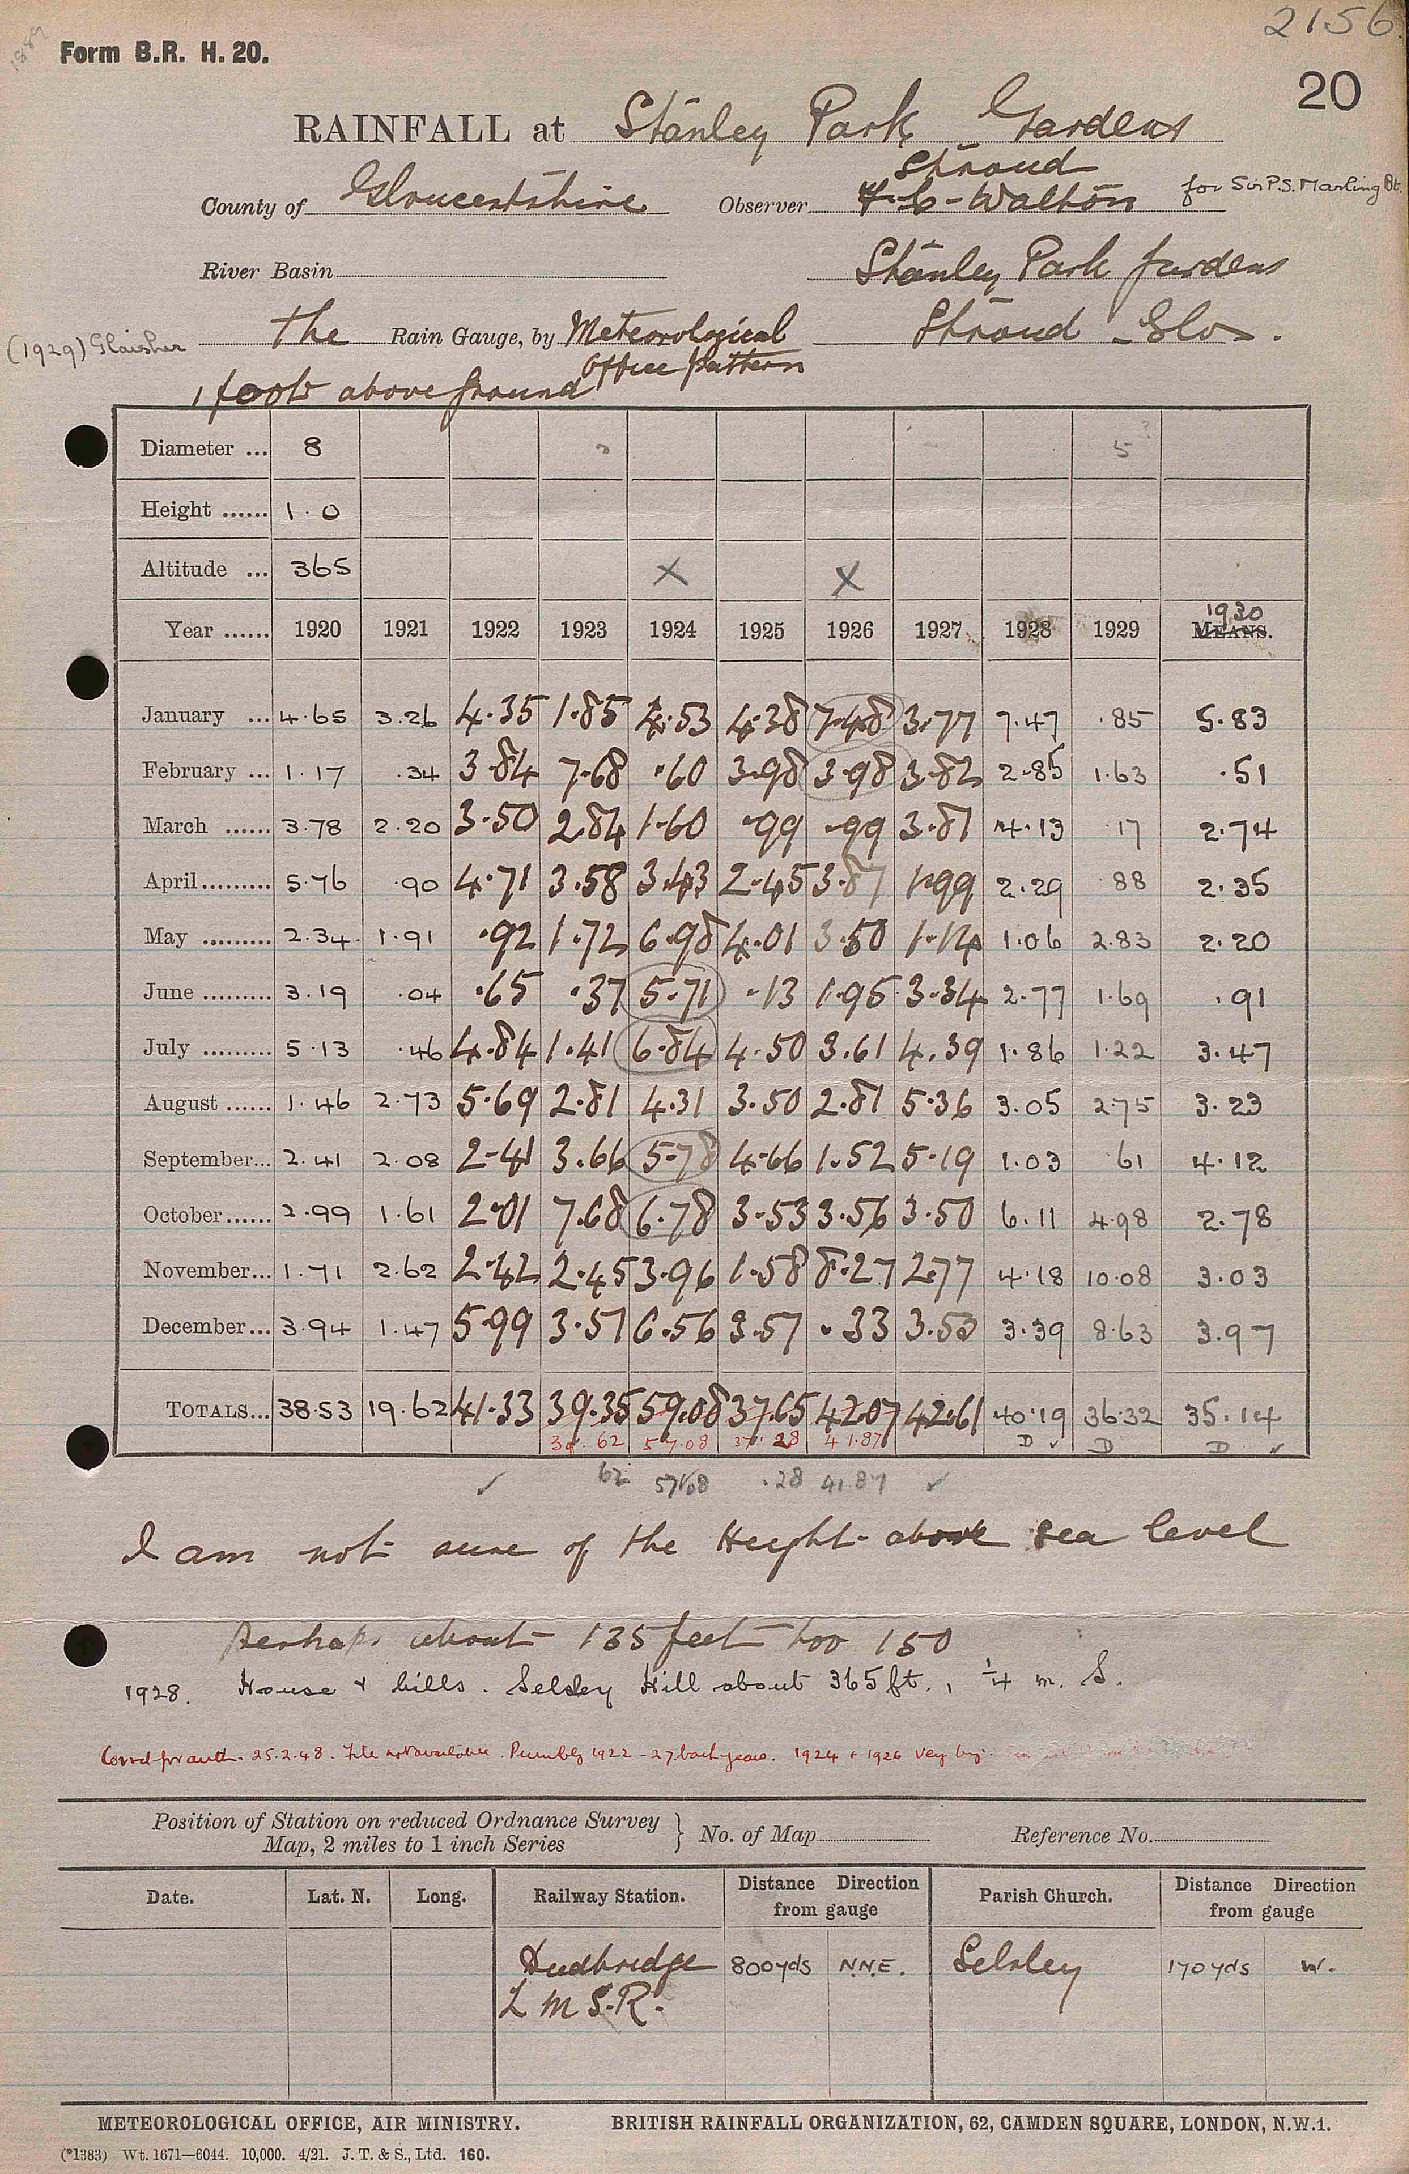 2156
Form B.R. H. 20.
20
RAINFALL at Stanley Park Gardens
Stroud
County of Gloucestshire Observer H. C - Walton for Sir P.S. Marling Bt.
River Basin Stanley Park Gardens
(1929) Glaisher The Rain Gauge, by Meteorological Stroud - Glos.
Office Pattern
1 foot above ground
Diameter ... 8 5 ?
Height ...... 1.0
Altitude ... 365 X X
1930
Year ...... 1920 1921 1922 1923 1924 1925 1926 1927 1928 1929 MEANS.
January ... 4.65 3.26 4.35 1.85 4.53 4.38 7.48 3.77 7.47 .85 5.83
February ... 1.17 .34 3.84 7.68 .60 3.98 3.98 3.82 2.85 1.63 .51
March ...... 3.78 2.20 3.50 2.84 1.60 .99 .99 3.81 4.13 17 2.74
April......... 5.76 .90 4.71 3.58 3.43 2.45 3.87 1.99 2.29 88 2.35
May ......... 2.34 1.91 .92 1.72 6.98 4.01 3.50 1.14 1.06 2.83 2.20
June ......... 3.19 .04 .65 .37 5.71 .13 1.95 3.34 2.77 1.69 .91
July ......... 5.13 .46 4.84 1.41 6.84 4.50 3.61 4.39 1.86 1.22 3.47
August ...... 1.46 2.73 5.69 2.81 4.31 3.50 2.81 5.36 3.05 2.75 3.23
September... 2.41 2.08 2.41 3.66 5.78 4.66 1.52 5.19 1.03 61 4.12
October...... 2.99 1.61 2.01 7.68 6.78 3.53 3.56 3.50 6.11 4.98 2.78
November... 1.71 2.62 2.42 2.45 3.96 1.58 8.27 2.77 4.18 10.08 3.03
December... 3.94 1.47 5.99 3.57 6.56 3.57 .33 3.53 3.39 8.63 3.97
TOTALS... 38.53 19.62 41.33 39.35 59.08 37.65 42.07 42.61 40.19 36.32 35.14
39.62 57.08 37.28 41.87 D ✓ D D ✓
✓ 62 57.08 .28 41.87 ✓
I am not sure of the Height above sea level
Perhaps about 135 feet too 150
1928. House & hills. Selsley Hill about 365 ft., ¼ m. S.
25.2.48. File not available. 1922 - 27 back years. 1924 + 1926 very
Position of Station on reduced Ordnance Survey } No. of Map Reference No.
Map, 2 miles to 1 inch Series
Date. Lat. N. Long. Railway Station. Distance Direction from gauge Parish Church. Distance Direction from gauge
Dudbridge 800yds N.N.E. Selsley 170yds W.
L M S.R.
METEOROLOGICAL OFFICE, AIR MINISTRY. BRITISH RAINFALL ORGANIZATION, 62, CAMDEN SQUARE, LONDON, N.W.1.
(*1383) Wt. 1671—6044. 10,000. 4/21. J. T. & S., Ltd. 160.